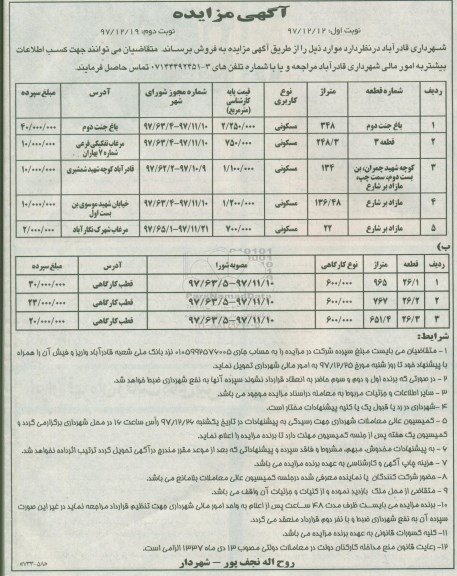 آگهی مزایده
نوبت اول: ۹۷/۱۲/۱۲
نوبت دوم: ۹۷/۱۲/۱۹
شهرداری قادرآباد در نظر دارد موارد ذیل را از طریق آگهی مزایده به فروش برساند. متقاضیان می توانند جهت کسب اطلاعات
بیشتر به امور مالی شهرداری قادرآباد مراجعه و یا با شماره تلفن های ۳-۰۷۱۴۴۴۹۲۲۵۱ تماس حاصل فرمایند.
ردیف شماره قطعه متراژ نوع کاربری قیمت پایه کارشناسی (مترمربع) شماره مجوز شورای شهر آدرس مبلغ سپرده
۱ باغ جنت دوم ۳۴۸ مسکونی ۲/۲۵۰/۰۰۰ ۹۷/۶۳/۴-۹۷/۱۱/۱۰ باغ جنت دوم ۴۰/۰۰۰/۰۰۰
۲ قطعه ۳ ۲۴۸/۳ مسکونی ۷۵۰/۰۰۰ ۹۷/۶۳/۴-۹۷/۱۱/۱۰ مرغاب تفکیکی فرعی شماره ۷ بهاران ۱۰/۰۰۰/۰۰۰
۳ کوچه شهید چمران، بن بست دوم، سمت چپ، مازاد بر شارع ۱۳۴ مسکونی ۱/۱۰۰/۰۰۰ ۹۷/۶۲/۲-۹۷/۱۰/۹ قادرآباد کوچه شهید شمشیری ۱۰/۰۰۰/۰۰۰
۴ مازاد بر شارع ۱۳۶/۴۸ مسکونی ۱/۲۰۰/۰۰۰ ۹۷/۶۳/۴-۹۷/۱۱/۱۰ خیابان شهید موسوی بن بست اول ۱۰/۰۰۰/۰۰۰
۵ مازاد بر شارع ۲۲ مسکونی ۷۰۰/۰۰۰ ۹۷/۶۵/۱-۹۷/۱۱/۲۱ مرغاب شهرک نگارآباد ۲/۰۰۰/۰۰۰
ب)
ردیف قطعه متراژ نوع کارگاهی مصوبه شورا آدرس مبلغ سپرده
۱ ۲۶/۱ ۹۶۵ ۶۰۰/۰۰۰ ۹۷/۶۳/۵-۹۷/۱۱/۱۰ قطب کارگاهی ۳۰/۰۰۰/۰۰۰
۲ ۲۶/۲ ۷۶۷ ۶۰۰/۰۰۰ ۹۷/۶۳/۵-۹۷/۱۱/۱۰ قطب کارگاهی ۲۳/۰۰۰/۰۰۰
۳ ۲۶/۳ ۶۵۱/۴ ۶۰۰/۰۰۰ ۹۷/۶۳/۵-۹۷/۱۱/۱۰ قطب کارگاهی ۲۰/۰۰۰/۰۰۰
شرایط:
۱- متقاضیان می بایست مبلغ سپرده شرکت در مزایده را به حساب جاری ۰۱۰۵۹۹۲۵۷۴۰۰۵ نزد بانک ملی شعبه قادرآباد واریز و فیش آن را همراه
با پیشنهاد خود تا روز شنبه مورخ ۹۷/۱۲/۲۵ به امور مالی شهرداری تحویل نماید.
۲- در صورتی که برنده اول و دوم و سوم حاضر به انعقاد قرارداد نشوند سپرده آنها به نفع شهرداری ضبط خواهد شد.
۳- سایر اطلاعات و جزئیات مربوط به معامله در اسناد مزایده موجود می باشد.
۴- شهرداری در رد یا قبول یک یا کلیه پیشنهادات مختار است.
۵- کمیسیون عالی معاملات شهرداری جهت رسیدگی به پیشنهادات در تاریخ یکشنبه ۹۷/۱۲/۲۶ رأس ساعت ۱۶ در محل شهرداری برگزار می گردد و
کمیسیون یک هفته پس از جلسه کمیسیون مهلت دارد تا برنده مزایده را اعلام نماید.
۶- به پیشنهادات مخدوش، مبهم، مشروط و فاقد سپرده و پیشنهاداتی که بعد از موعد مقرر مندرج در آگهی تحویل گردد ترتیب اثر داده نخواهد شد.
۷- هزینه چاپ آگهی و کارشناسی به عهده برنده مزایده می باشد.
۸- حضور شرکت کنندگان یا نماینده معرفی شده در جلسه کمیسیون عالی معاملات بلامانع می باشد.
۹- متقاضی از محل ملک بازدید نموده و از کلیات و جزئیات آن واقف می باشد.
۱۰- برنده مزایده می بایست ظرف مدت ۴۸ ساعت پس از اعلام به واحد امور مالی شهرداری جهت تنظیم قرارداد مراجعه نماید در غیر این صورت
سپرده آن به نفع شهرداری ضبط و با نفر دوم قرارداد منعقد می گردد.
۱۱- کلیه کسورات قانونی به عهده برنده مزایده می باشد.
۱۲- رعایت قانون منع مداخله کارکنان دولت در معاملات دولتی مصوب ۱۳ دی ماه ۱۳۳۷ الزامی است.
روح اله نجف پور - شهردار